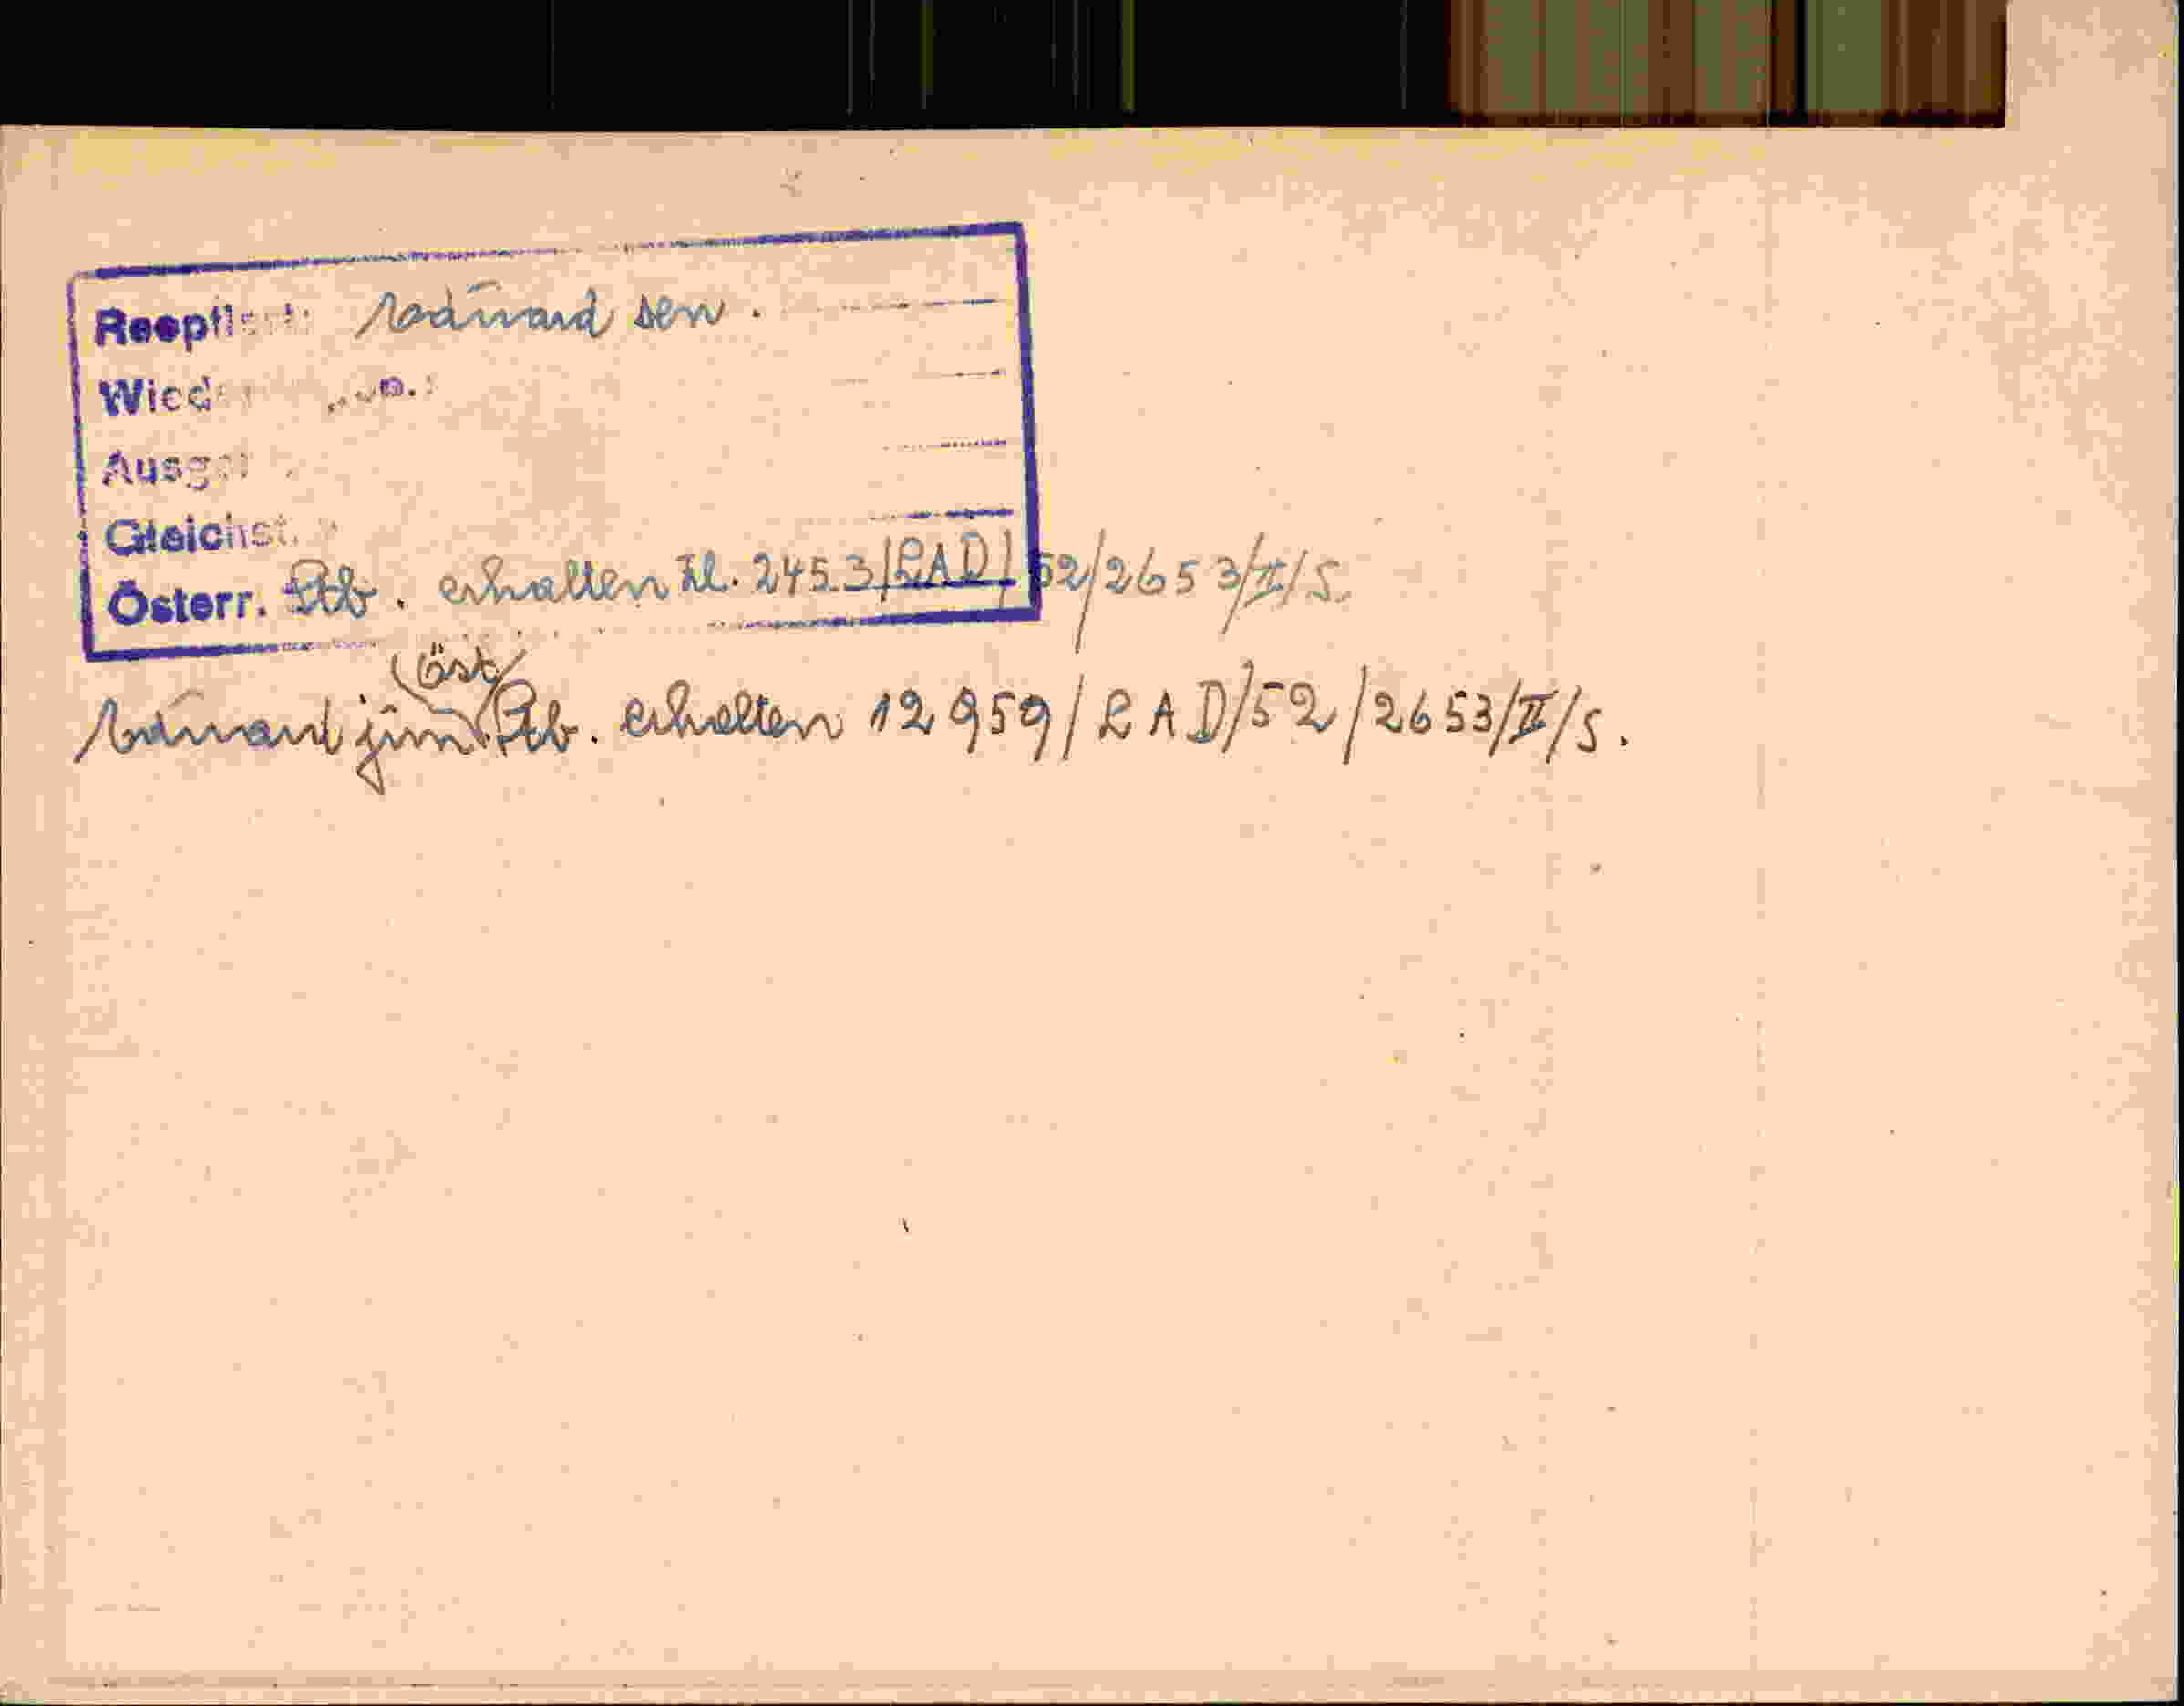 Reoptiert: Eduard sen.
Wied
Ausge
Gleichst.
Österr. Stb. erhalten Zl. 2453/LAD/52/2653/II/S.
(öst)
Eduard jun. Stb. erhalten 12959/LAD/52/2653/II/S.